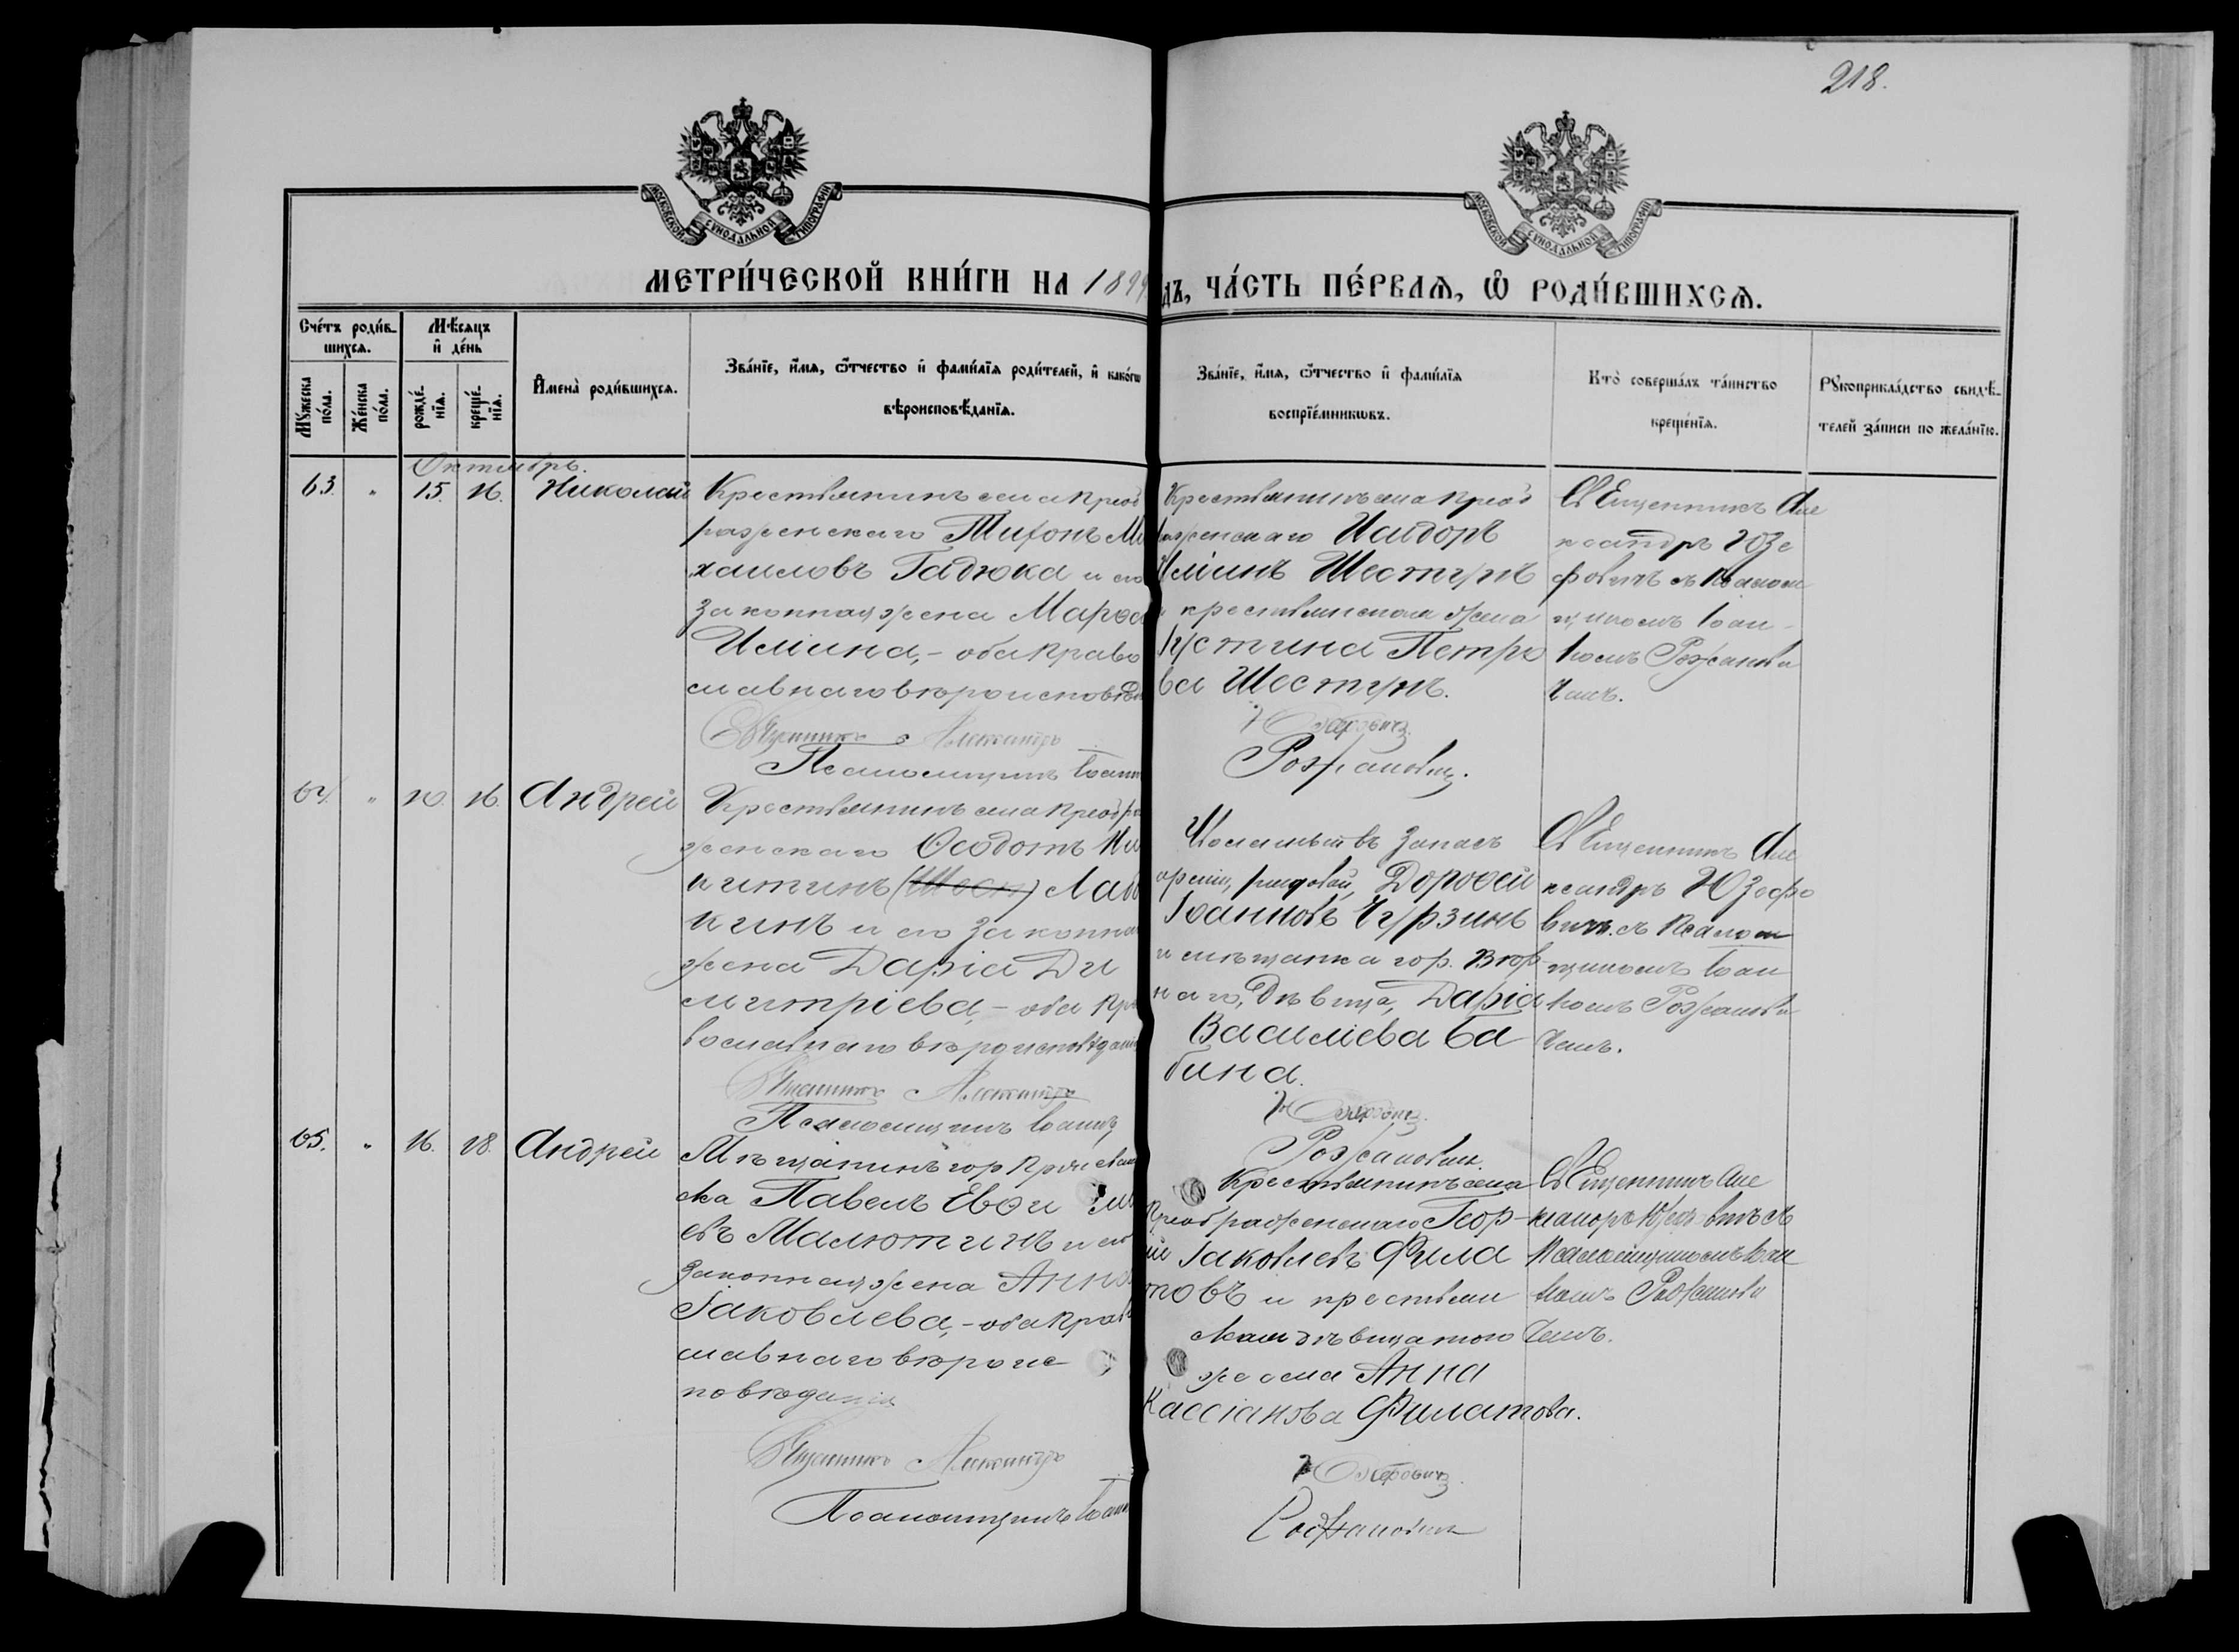 218.
МОСКОВСКОЙ СѴНОДАЛЬНОЙ ТИПОГРАФІИ
МОСКОВСКОЙ СѴНОДАЛЬНОЙ ТИПОГРАФІИ
МЕТРИ́ЧЕСКОЙ КНИ́ГИ НА 1899
ДЪ, ЧА́СТЬ ПЕ́РВАѦ, Ѡ҆ РОДИ́ВШИХСѦ.
Сче́тъ роди́в-
шихсѧ.
Мѣ́сѧцъ
и҆ де́нь
Мꙋ́жеска
по́ла.
Же́нска
по́ла.
рожде́-
нїѧ.
креще́-
нїѧ.
И҆мена̀ роди́вшихсѧ.
Зва́нїе, и҆́мѧ, ѻ҆́тчество и҆ фами́лїѧ роди́телей, и҆ како́гѡ
вѣроисповѣ́данїѧ.
Зва́нїе, и҆́мѧ, ѻ҆́тчество и҆ фами́лїѧ
воспрїе́мникѡвъ.
Кто̀ соверша́лъ та́инство
креще́нїѧ.
Рꙋкоприкла́дство свидѣ́-
телей за́писи по жела́нїю.
Октябрь.
63. " 15. 16. Николай
Крестьянинъ села Преоб
раженскаго Тихонъ Ми
хаиловъ Гадюка и его
законная жена Марѳа
Ильина, - оба право
славнаго вѣроисповѣдан
Священникъ Александръ
Псаломщикъ Іоанн
Крестьянинъ села Преоб
раженскаго Исидоръ
Ильинъ Шестукъ
и крестьянская жена
Іустина Петро
ва Шестукъ.
Юзефовичъ.
Рожановичъ.
Священникъ Але
ксандръ Юзе
фовичъ съ Псалом
щикомъ Іоан-
номъ Рожанови
чемъ.
64. " 10. 16. Андрей
Крестьянинъ села Преобра
женскаго Ѳеодотъ Ни
китинъ Лаб
кинъ и его законна
жена Дарія Ди
митріева, - оба пра
вославнаго вѣроисповѣдані
Священникъ Александръ
Псаломщикъ Іоаннъ
Числящійся въ запасѣ
арміи, рядовой, Дороѳей
Іоанновъ Чурзинъ
и мѣщанка гор. Вѣр
наго, дѣвица, Дарія
Василіева Ба
бина.
Юзефовичъ.
Рожановичъ.
Священникъ Але
ксандръ Юзефо
вичъ съ Псалом
щикомъ Іоан
номъ Рожанови
чемъ.
65. " 16. 18. Андрей
Мѣщанинъ гор
ска Павелъ Евѳи
евъ Малютинъ и его
законная жена Анна
Іаковлева, - оба право
славнаго вѣроис
повѣданія
Священникъ Александръ
Псаломщикъ Іоанн
Крестьянинъ села
Преображенскаго Геор-
гій Іаковлевъ Фила
товъ и крестьян
ская дѣвица того
же села Анна
Кассіанова Филатова.
Юзефовичъ.
Рожановичъ
Священникъ Але
ксандръ Юзефовичъ съ
Псаломщикомъ Іоан
номъ Рожанови
чемъ.